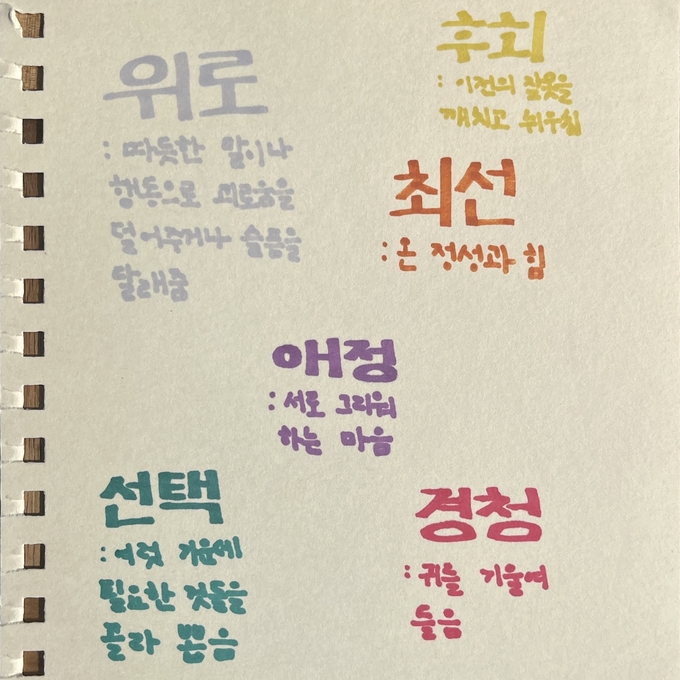 위로
: 따뜻한 말이나
행동으로 괴로움을
덜어주거나 슬픔을
달래줌
후회
: 이전의 잘못을
깨치고 뉘우침
최선
: 온 정성과 힘
애정
: 서로 그리워
하는 마음
선택
: 여럿 가운데
필요한 것들을
골라 뽑음
경청
: 귀를 기울여
들음